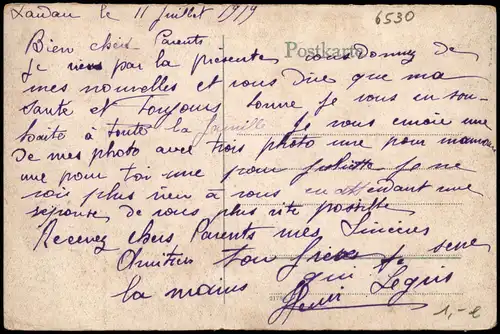 Landau le 11 Juillet 1919
6530
Postkarte
Bien chers Parents
Je viens par la présente vous donnez de
mes nouvelles et vous dire que ma
santé et toujours bonne je vous en sou-
haite à toute la famille Je vous envoie une
de mes photo avec trois photo une pour maman
une pour toi une pour Juliette Je ne
vois plus rien à vous en attendant une
réponse de vous plus vite possible
Recevez chers Parents mes Sincères
Amitiés ton frère je serre
la mains qui
Henri Legris
1,-e